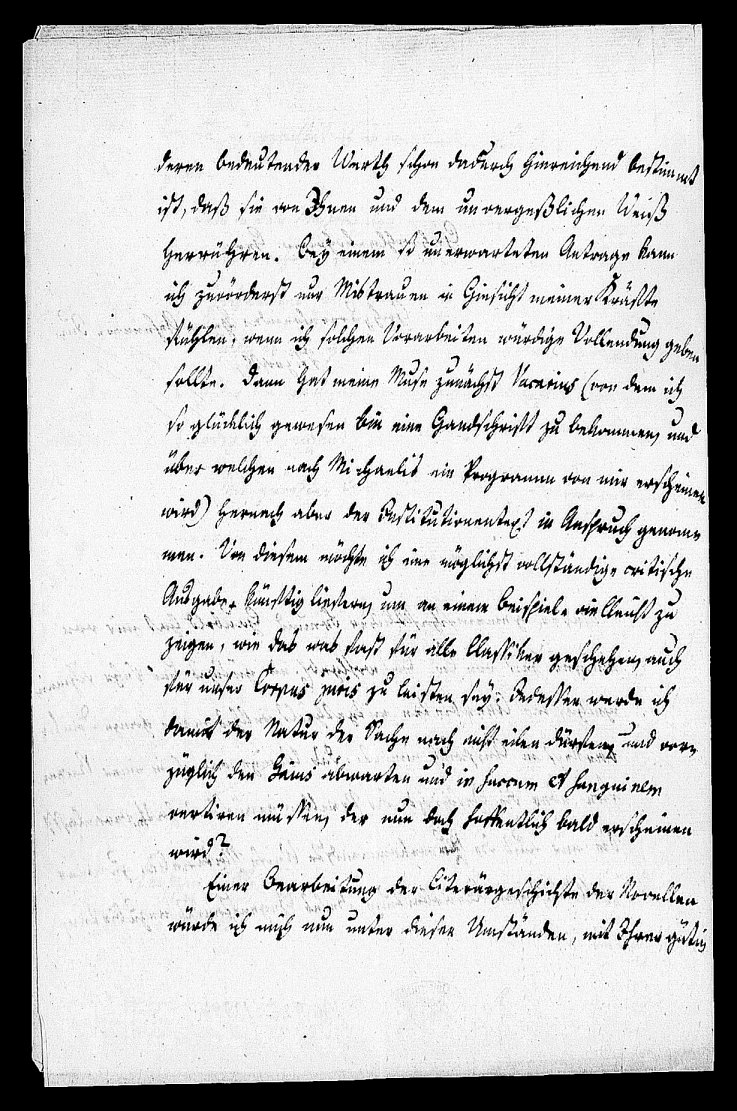 deren bedeutender Werth schon dadurch hinreichend bestimmt
ist, daß sie von Ihnen und dem unvergeßlichen Weiß
herrühren. Bey einem so unerwarteten Antrage kann
ich zuvörderst nur Mistrauen in Hinsicht meiner Kräfte
fühlen, wenn ich solchen Vorarbeiten würdige Vollendung geben
sollte. Dann hat meine Muse zunächst Vacarius (von dem ich
so glücklich gewesen bin eine Handschrift zu bekommen, und
über welchen nach Michaelis ein Programm von mir erscheinen
wird) hernach aber der Institutionentext in Anspruch genom-
men. Von diesem möchte ich eine möglichst vollständige critische
Ausgabe künftig liefern, um an einem Beispiele vielleicht zu
zeigen, wie das was fast für alle Classiker geschehen, auch
für unser Corpus juris zu leisten sey. Indessen werde ich
damit der Natur der Sache nach nicht eilen dürfen, und vor-
züglich den Gaius abwarten und in succum et sanguinem
vertiren müssen, der nun doch hoffentlich bald erscheinen
wird?
Einer Bearbeitung der Literärgeschichte der Novellen
würde ich mich nun unter diesen Umständen, mit Ihrer gütig